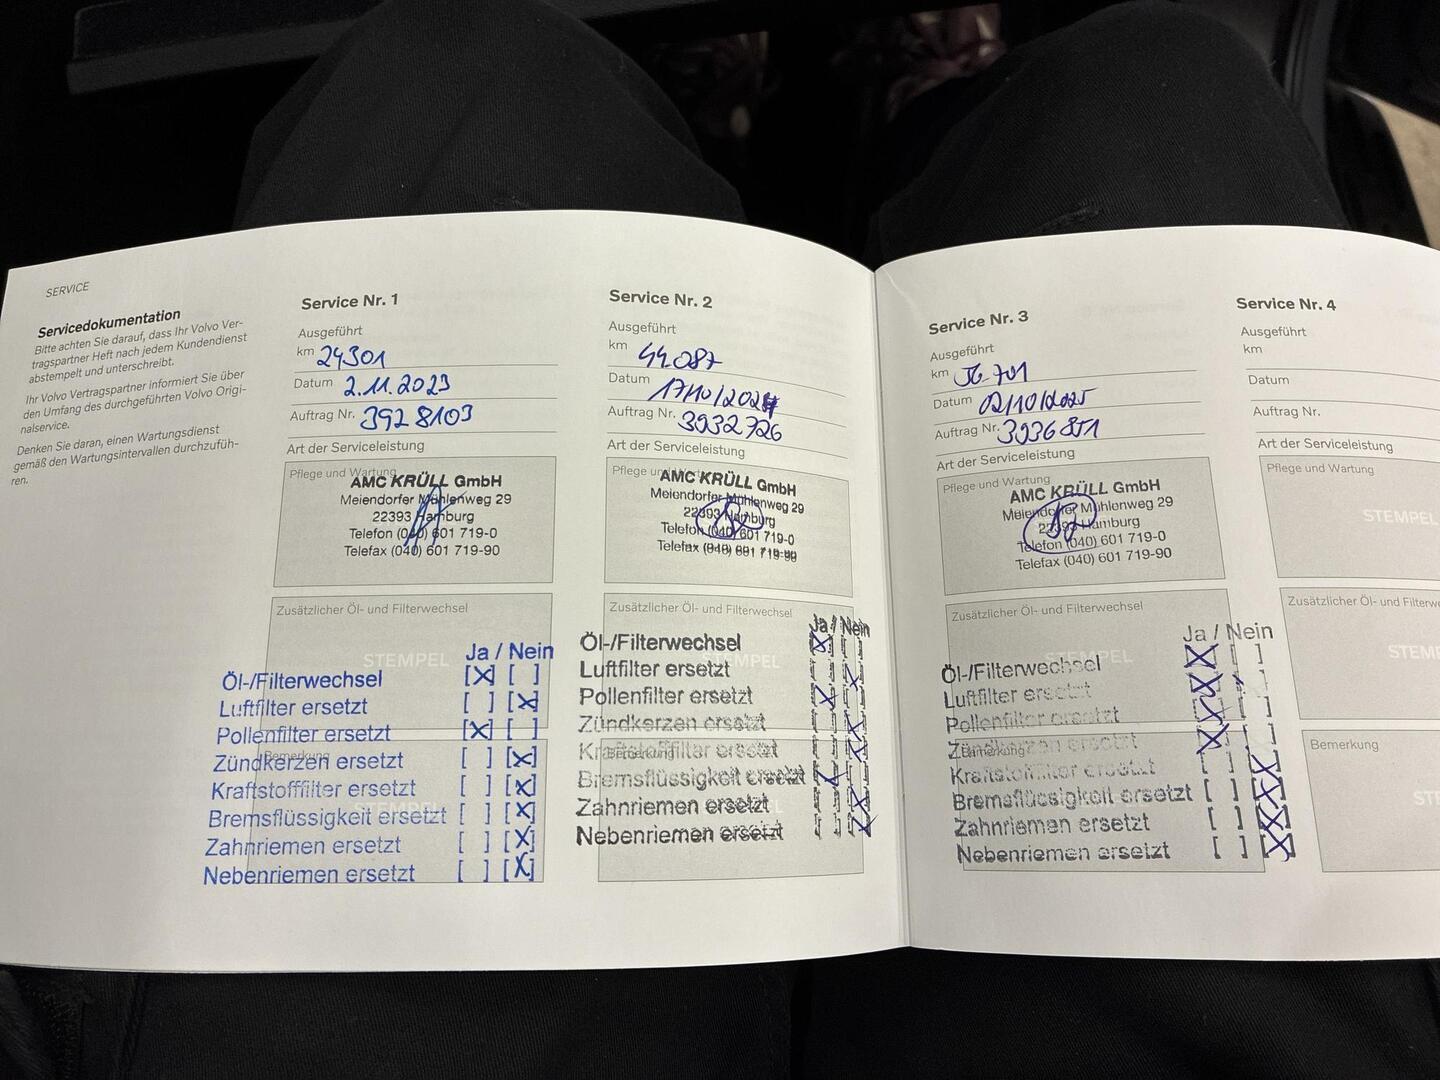 SERVICE
Servicedokumentation
Bitte achten Sie darauf, dass Ihr Volvo Ver-
tragspartner Heft nach jedem Kundendienst
abstempelt und unterschreibt.
Ihr Volvo Vertragspartner informiert Sie über
den Umfang des durchgeführten Volvo Origi-
nalservice.
Denken Sie daran, einen Wartungsdienst
gemäß den Wartungsintervallen durchzufüh-
ren.
Service Nr. 1
Ausgeführt
km 24301
Datum 2.11.2023
Auftrag Nr. 3928103
Art der Serviceleistung
Pflege und Wartung
AMC KRÜLL GmbH
Meiendorfer Mühlenweg 29
22393 Hamburg
Telefon (040) 601 719-0
Telefax (040) 601 719-90
Zusätzlicher Öl- und Filterwechsel
STEMPEL
Ja / Nein
Öl-/Filterwechsel [X] [ ]
Luftfilter ersetzt [ ] [X]
Pollenfilter ersetzt [X] [ ]
Bemerkung
Zündkerzen ersetzt [ ] [X]
Kraftstofffilter ersetzt [ ] [X]
Bremsflüssigkeit ersetzt [ ] [X]
Zahnriemen ersetzt [ ] [X]
Nebenriemen ersetzt [ ] [X]
Service Nr. 2
Ausgeführt
km 44.087
Datum 17/10/2024
Auftrag Nr. 3932726
Art der Serviceleistung
Pflege und Wartung
AMC KRÜLL GmbH
Meiendorfer Mühlenweg 29
22393 Hamburg
Telefon (040) 601 719-0
Telefax (040) 601 719-90
Zusätzlicher Öl- und Filterwechsel
STEMPEL
Ja / Nein
Öl-/Filterwechsel
Luftfilter ersetzt
Pollenfilter ersetzt
Zündkerzen ersetzt
Kraftstofffilter ersetzt
Bemerkung
Bremsflüssigkeit ersetzt
Zahnriemen ersetzt
Nebenriemen ersetzt
Service Nr. 3
Ausgeführt
km 56.701
Datum 02/10/2025
Auftrag Nr. 3936851
Art der Serviceleistung
Pflege und Wartung
AMC KRÜLL GmbH
Meiendorfer Mühlenweg 29
22393 Hamburg
Telefon (040) 601 719-0
Telefax (040) 601 719-90
Zusätzlicher Öl- und Filterwechsel
STEMPEL
Ja / Nein
Öl-/Filterwechsel
Luftfilter ersetzt
Pollenfilter ersetzt
Zündkerzen ersetzt
Bemerkung
Kraftstofffilter ersetzt
Bremsflüssigkeit ersetzt [ ] [X]
Zahnriemen ersetzt [ ] [X]
Nebenriemen ersetzt [ ] [X]
Service Nr. 4
Ausgeführt
km
Datum
Auftrag Nr.
Art der Serviceleistung
Pflege und Wartung
STEMPEL
Zusätzlicher Öl- und
Bemerkung